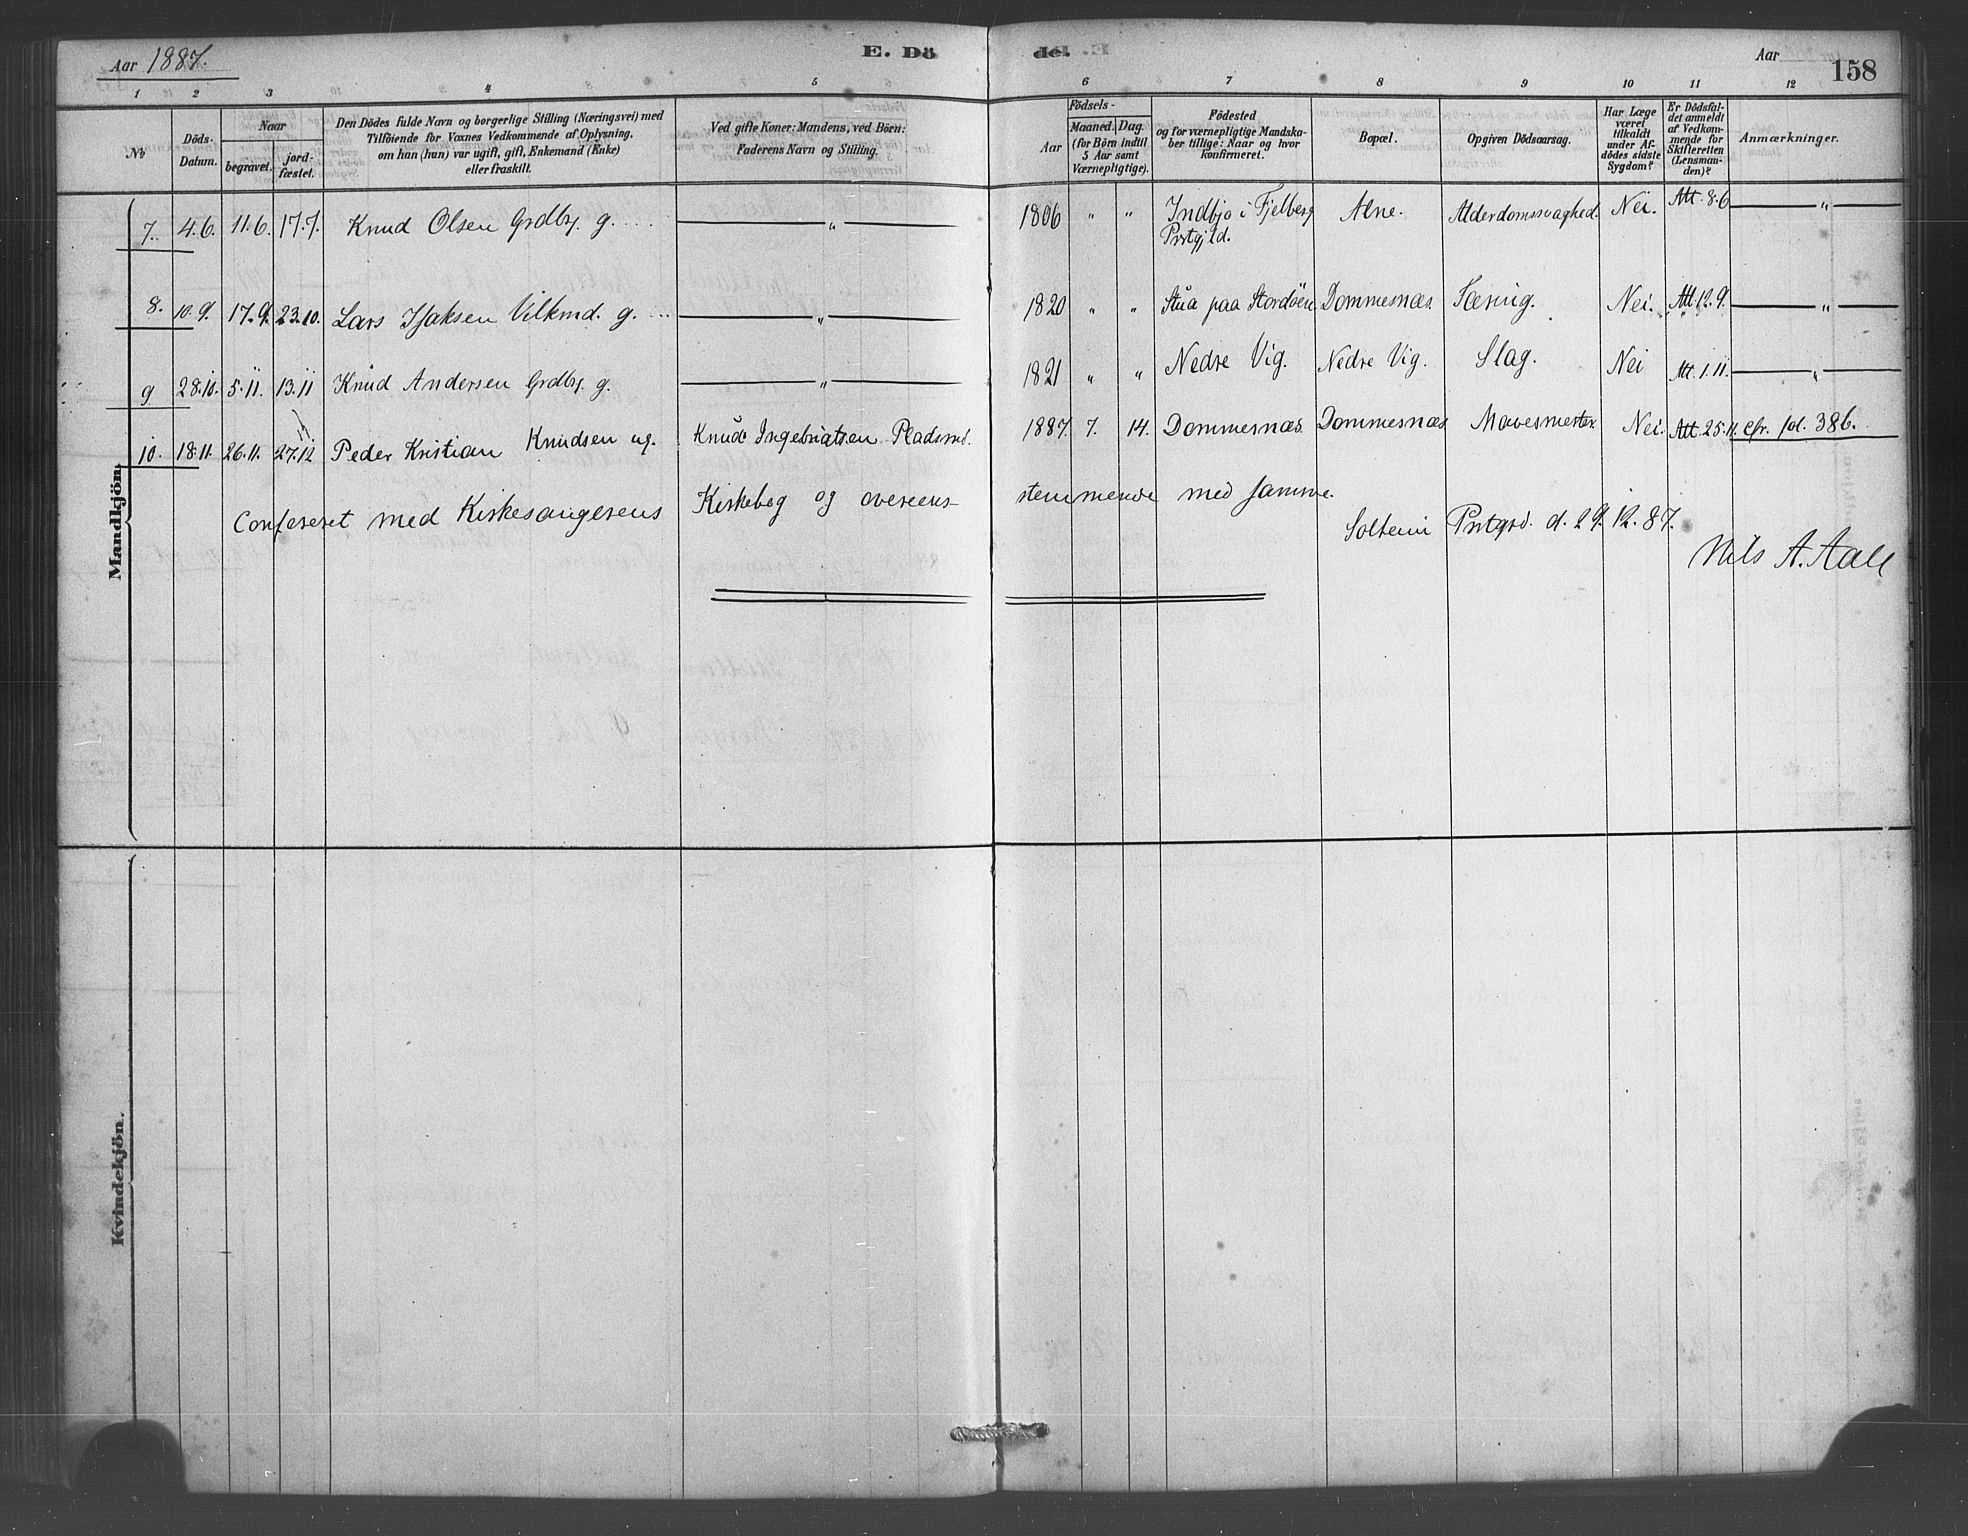 Aar 1887. E. Döde. Aar 158
1 2 3 4 5 6 7 8 9 10 11 12
No
Döds-Datum.
Naar
begravet.
jord-fæstet.
Den Dödes fulde Navn og borgerlige Stilling (Næringsvei) med
Tilföiende for Voxnes Vedkommende af Oplysning,
om han (hun) var ugift, gift, Enkemand (Enke)
eller fraskilt.
Ved gifte Koner: Mandens, ved Börn:
Faderens Navn og Stilling.
Födsels-
Aar
Maaned. Dag.
(for Börn indtil
5 Aar samt
Værnepligtige).
Födested
og for værnepligtige Mandska-
ber tillige: Naar og hvor
konfirmeret.
Bopæl.
Opgiven Dödsaarsag.
Har Læge
været
tilkaldt
under Af-
dödes sidste
Sygdom?
Er Dödsfal-
det anmeldt
af Vedkom-
mende for
Skifteretten
(Lensman-
den)?
Anmærkninger.
Mandkjön.
7. 4.6. 11.6. 17.7. Knud Olsen Grdbr. g. „ 1806 „ „ Indbjo i Fjelberg Prstgjld. Alne. Alderdomssvaghed. Nei. Att. 8.6 „
8. 10.9. 17.9. 23.10. Lars Isaksen Vilkmd. g. „ 1820 „ „ Stua paa Stordöen Dommesnæs. Tæring. Nei. Att. 12.9. „
9 28.10. 5.11. 13.11 Knud Andersen Grdbr. g. „ 1821 „ „ Nedre Vig. Nedre Vig. Slag. Nei Att. 1.11. „
10. 18.11. 26.11. 27.12 Peder Kristian Knudsen ug. Knud Ingebriktsen Pladsmd. 1887. 7. 14. Dommesnæs. Dommesnæs. Mavesmerter. Nei. Att. 25.11. cfr. fol. 386.
Confereret med Kirkesangerens Kirkebog og overens- stemmende med samme.
Solheim Prstgrd. d. 29.12.87.
Nils A. Aall
Kvindekjön.